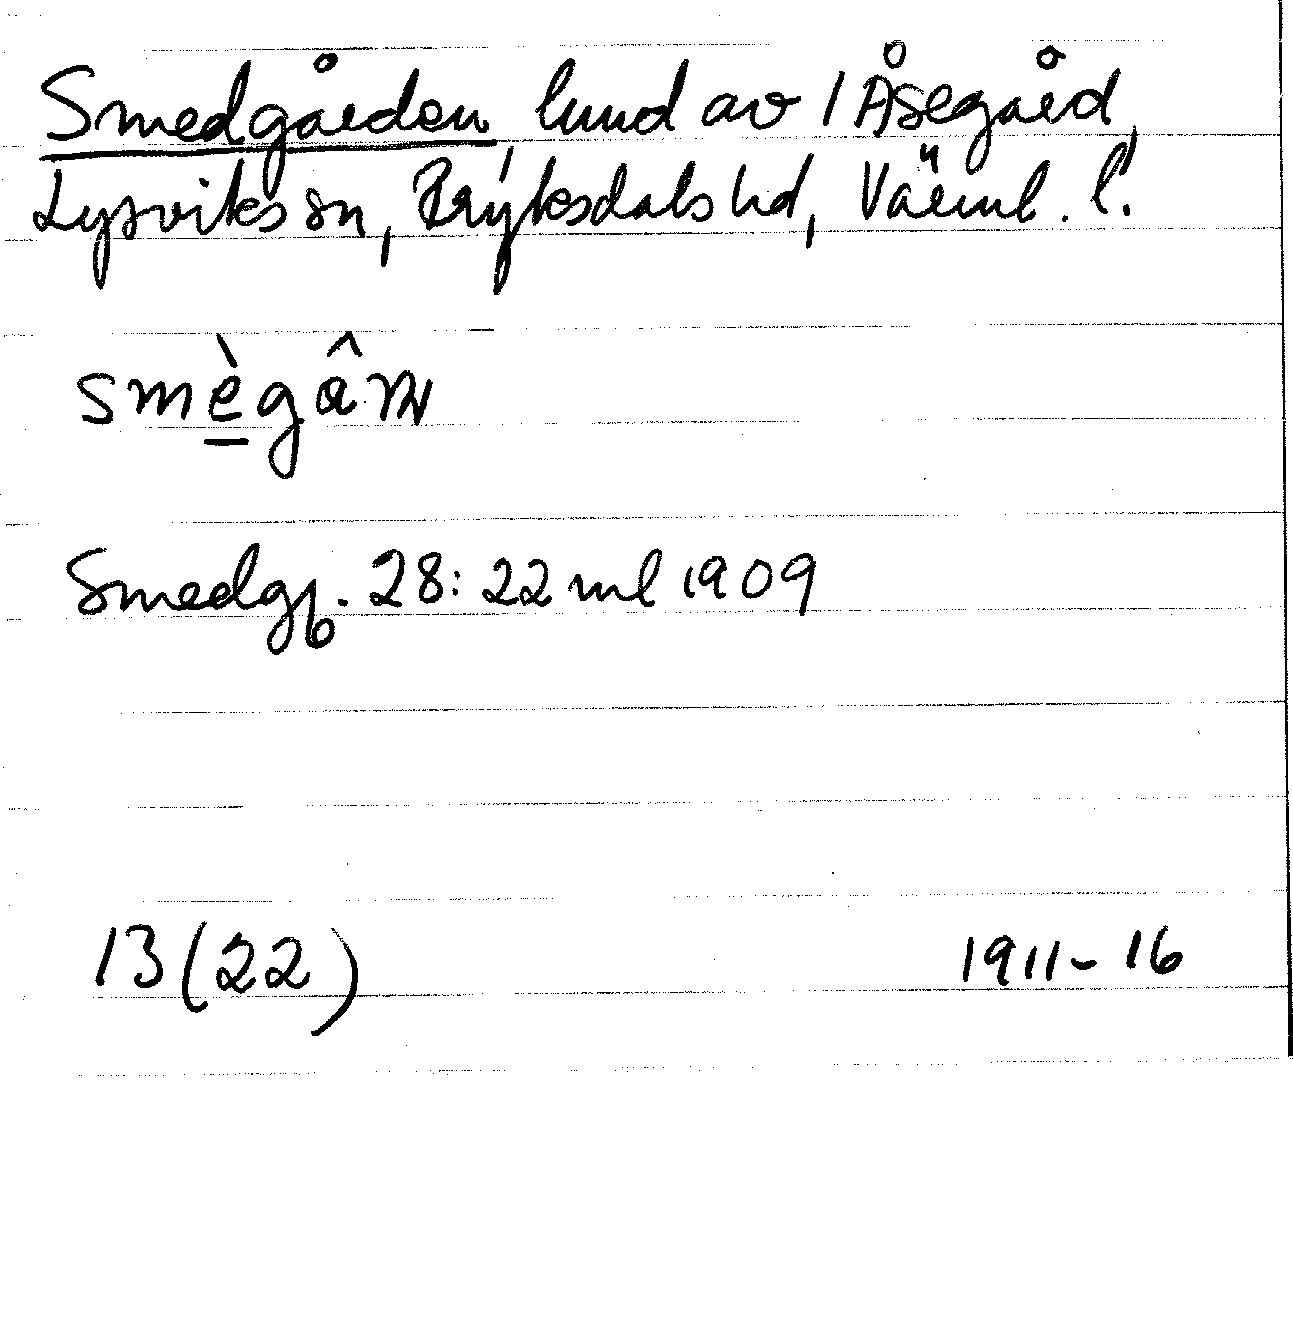 Smedgården lund av 1 Åsegård,
Lysviks sn, Fryksdals hd, Värml. l.
smègâṇ
Smedg. 28:22 ml 1909
13 (22) 1911-16